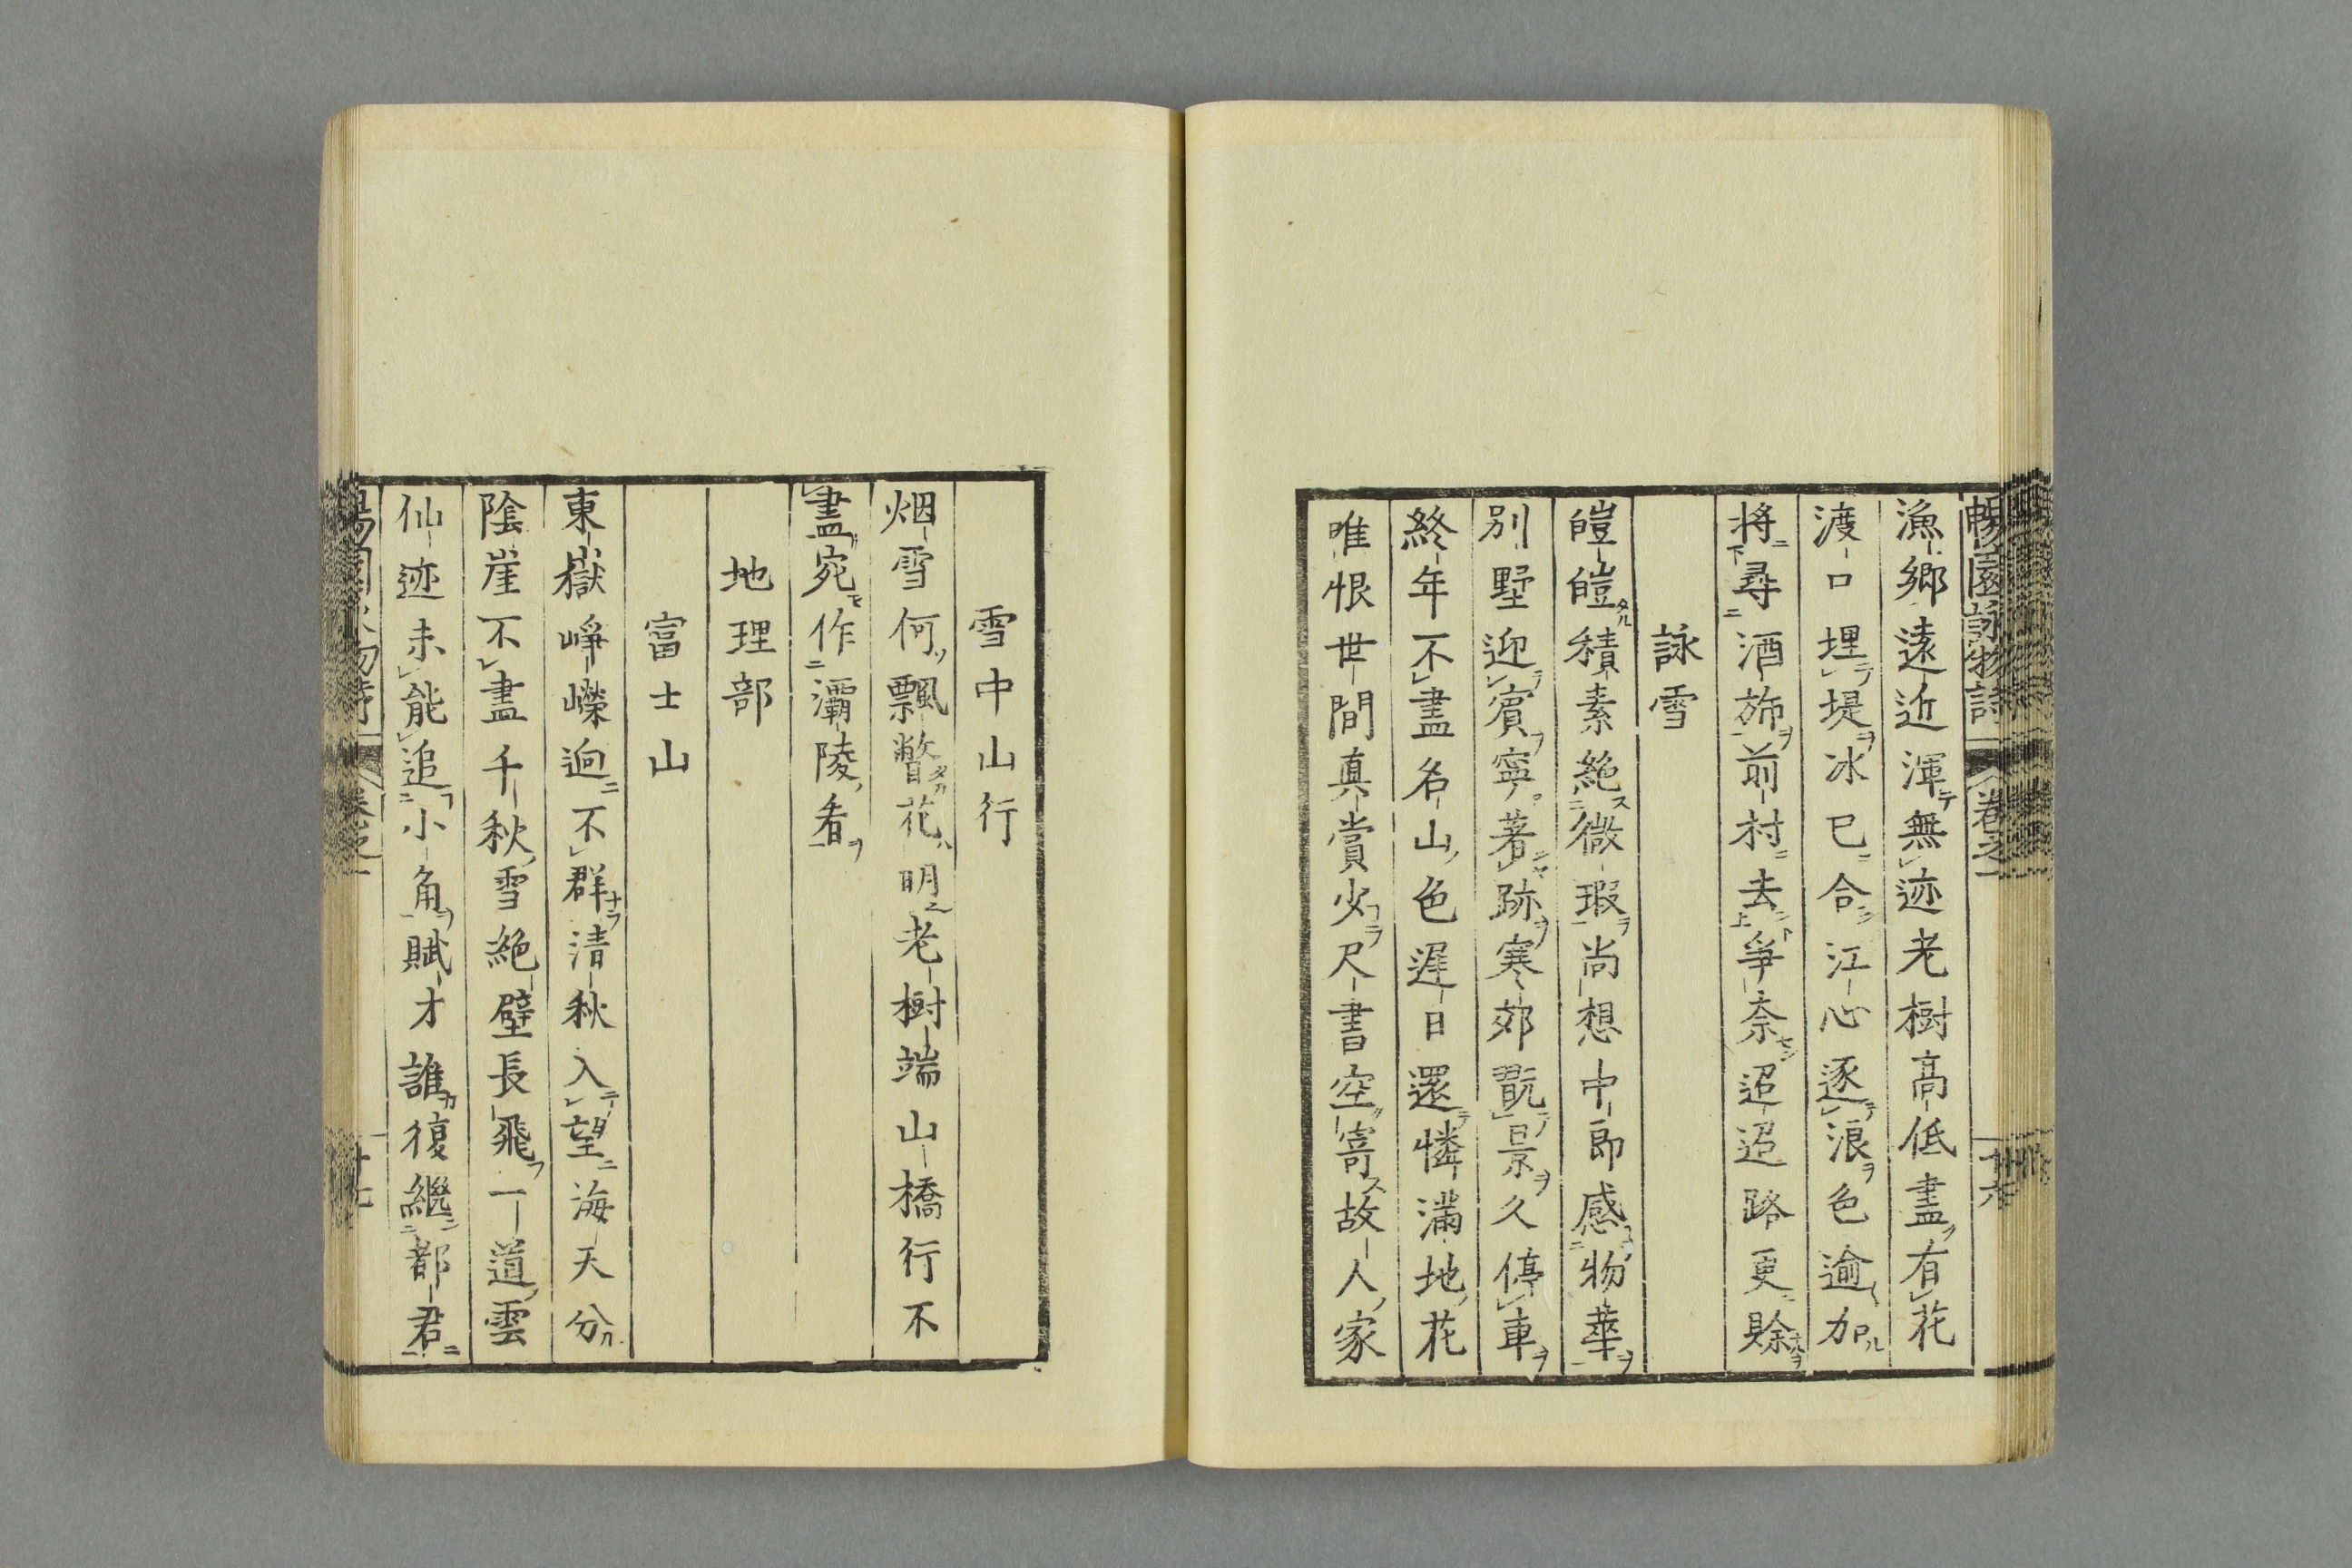 暢園詠物詩 卷之一 十六
漁鄉遠近渾無迹老樹高低盡有花
渡口埋堤冰已合江心逐浪色逾加
將尋酒旆前村去爭奈迢迢路更賒
詠雪
皚皚積素絶微瑕尚想中郎感物華
別墅迎賓寧著跡寒郊翫景久停車
終年不盡名山色遲日還憐滿地花
唯恨世間真賞少尺書空寄故人家
雪中山行
烟雪何飄瞥花明老樹端山橋行不
盡宛作灞陵看
地理部
富士山
東嶽崢嶸迥不群清秋入望海天分
陰崖不盡千秋雪絶壁長飛一道雲
仙迹未能追小角賦才誰復繼都君